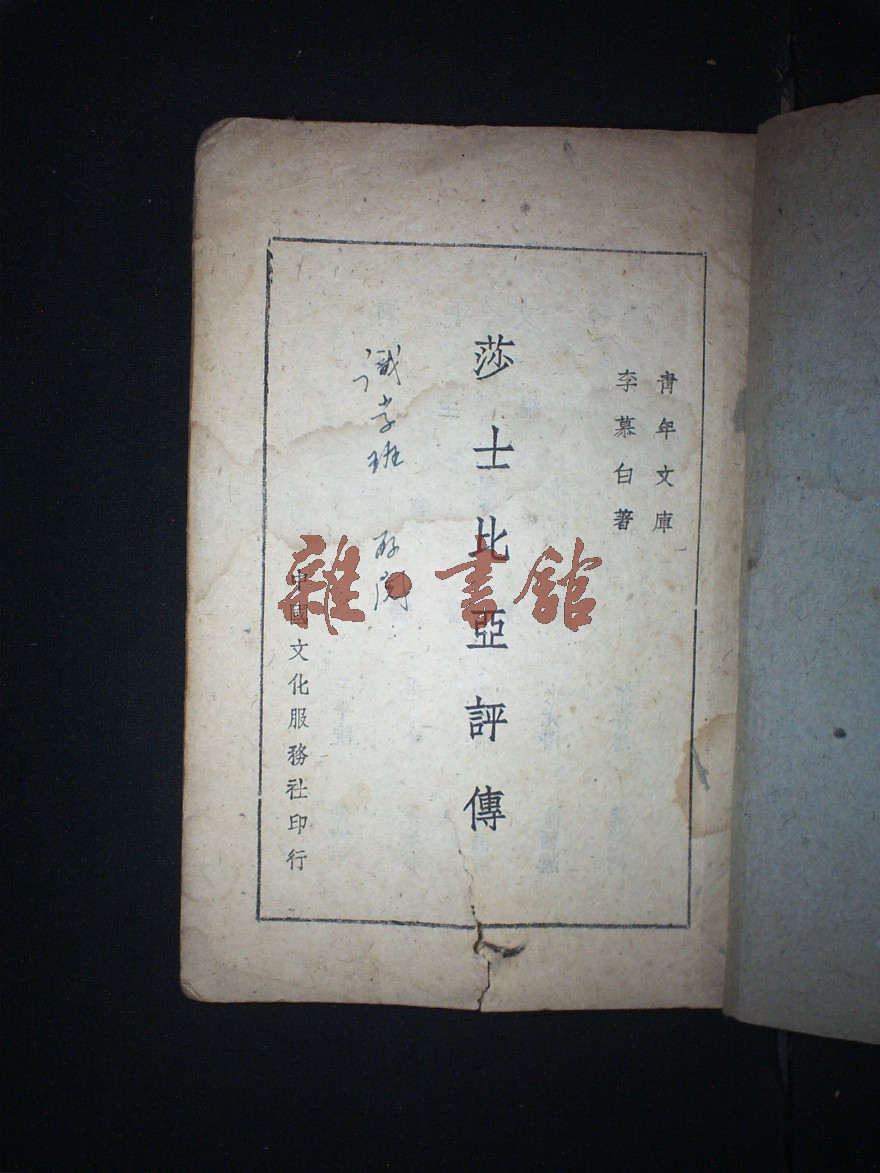 青年文庫
李慕白著
莎士比亞評傳
識字班 存閱
中國文化服務社印行
雜·書館